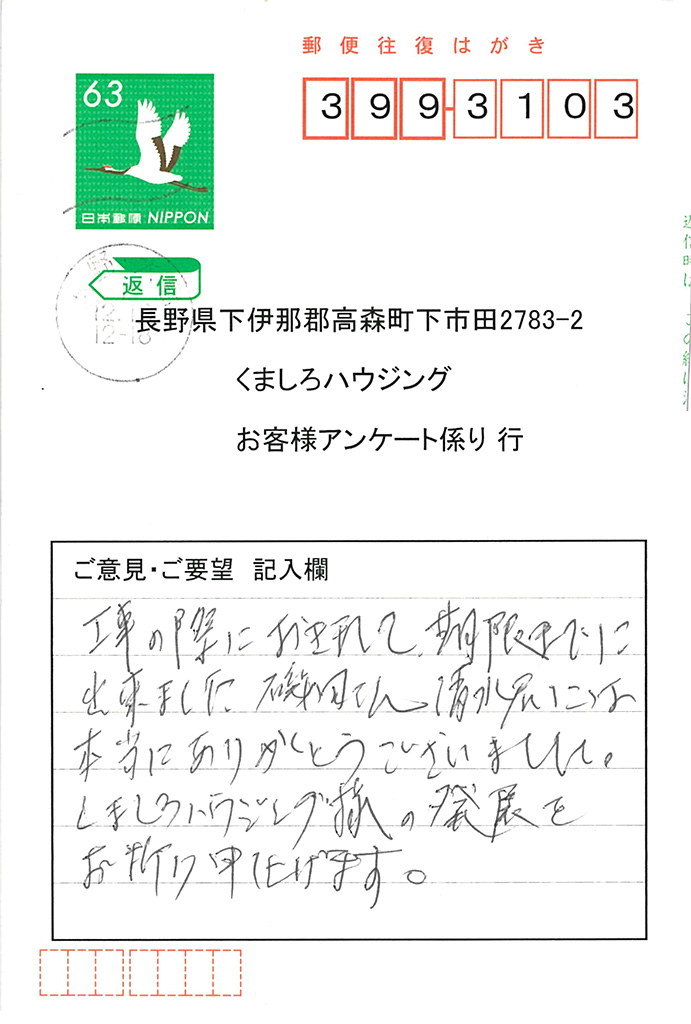 郵便往復はがき
63
日本郵便 NIPPON
399-3103
返信
長野県下伊那郡高森町下市田2783-2
くましろハウジング
お客様アンケート係り 行
ご意見・ご要望 記入欄
工事の際に 期限までに
出来ました。磯田さん、清水
本当にありがとうございました。
くましろハウジング様の発展を
お祈り申上げます。
返信時は
12-18